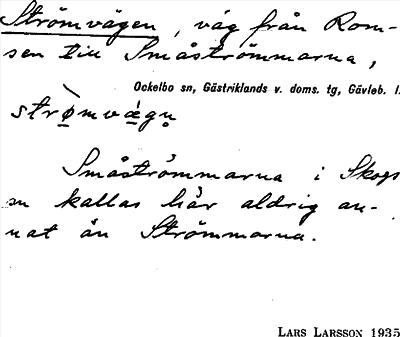 Strömvägen, väg från Rom-
sen till Småströmmarna,
Ockelbo sn, Gästriklands v. doms. tg, Gävleb. l.
strømvægn̥
Småströmmarna i Skogs
sn kallas här aldrig an-
nat än Strömmarna.
LARS LARSSON 1935